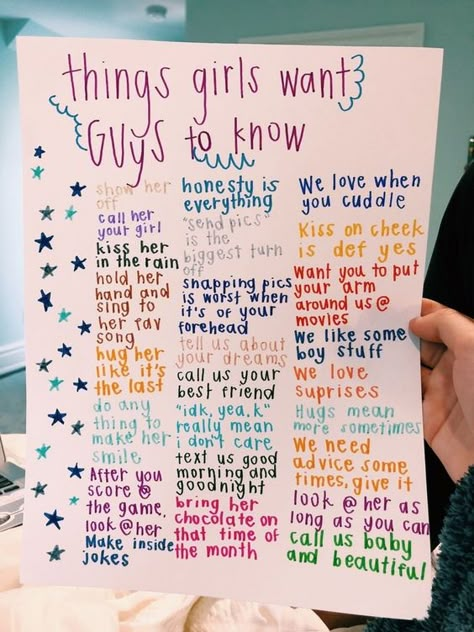 things girls want
Guys to know
show her
off
call her
your girl
kiss her
in the rain
hold her
hand and
sing to
her fav
song
hug her
like it's
the last
do any
thing to
make her
smile
After you
score @
the game,
look @ her
Make inside
jokes
honesty is
everything
"send pics"
is the
biggest turn
off
snapping pics
is worst when
it's of your
forehead
tell us about
your dreams
call us your
best friend
"idk, yea, k"
really mean
i don't care
text us good
morning and
goodnight
bring her
chocolate on
that time of
the month
We love when
you cuddle
Kiss on cheek
is def yes
Want you to put
your arm
around us @
movies
We like some
boy stuff
We love
suprises
Hugs mean
more sometimes
We need
advice some
times, give it
look @ her as
long as you can
call us baby
and beautiful